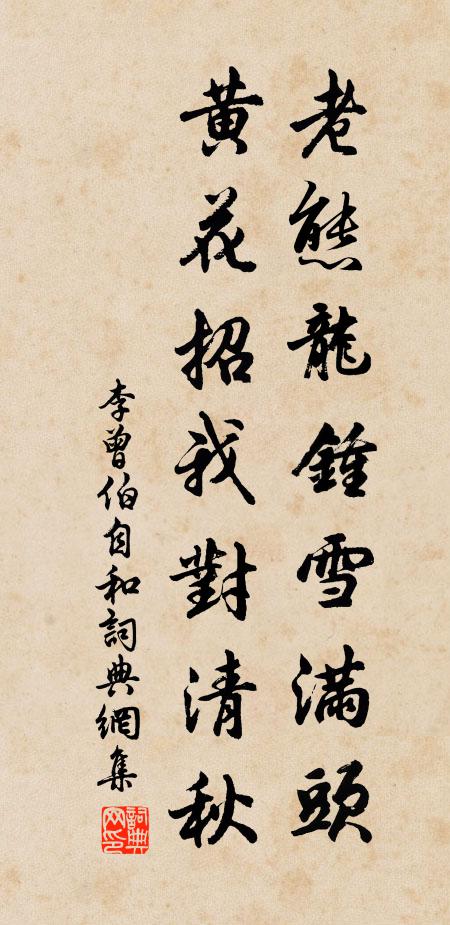 老態龍鍾雪滿頭
黃花招我對清秋
李曾伯自和詞典網集
詞典網印